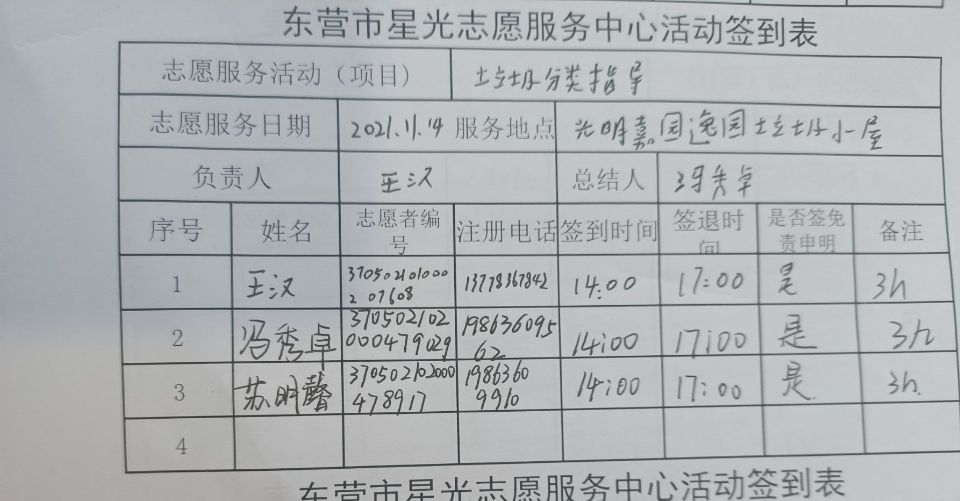 东营市星光志愿服务中心活动签到表
志愿服务活动（项目） 垃圾分类指导
志愿服务日期 2021.11.14 服务地点 光明嘉园逸园垃圾小屋
负责人 王汉 总结人 冯秀卓
序号 姓名 志愿者编号 注册电话 签到时间 签退时间 是否签免责申明 备注
1 王汉 370502101000207608 13778367842 14:00 17:00 是 3h
2 冯秀卓 370502102000479029 19863609562 14:00 17:00 是 3h
3 苏明馨 370502102000478917 19863609910 14:00 17:00 是 3h.
4
东营市星光志愿服务中心活动签到表